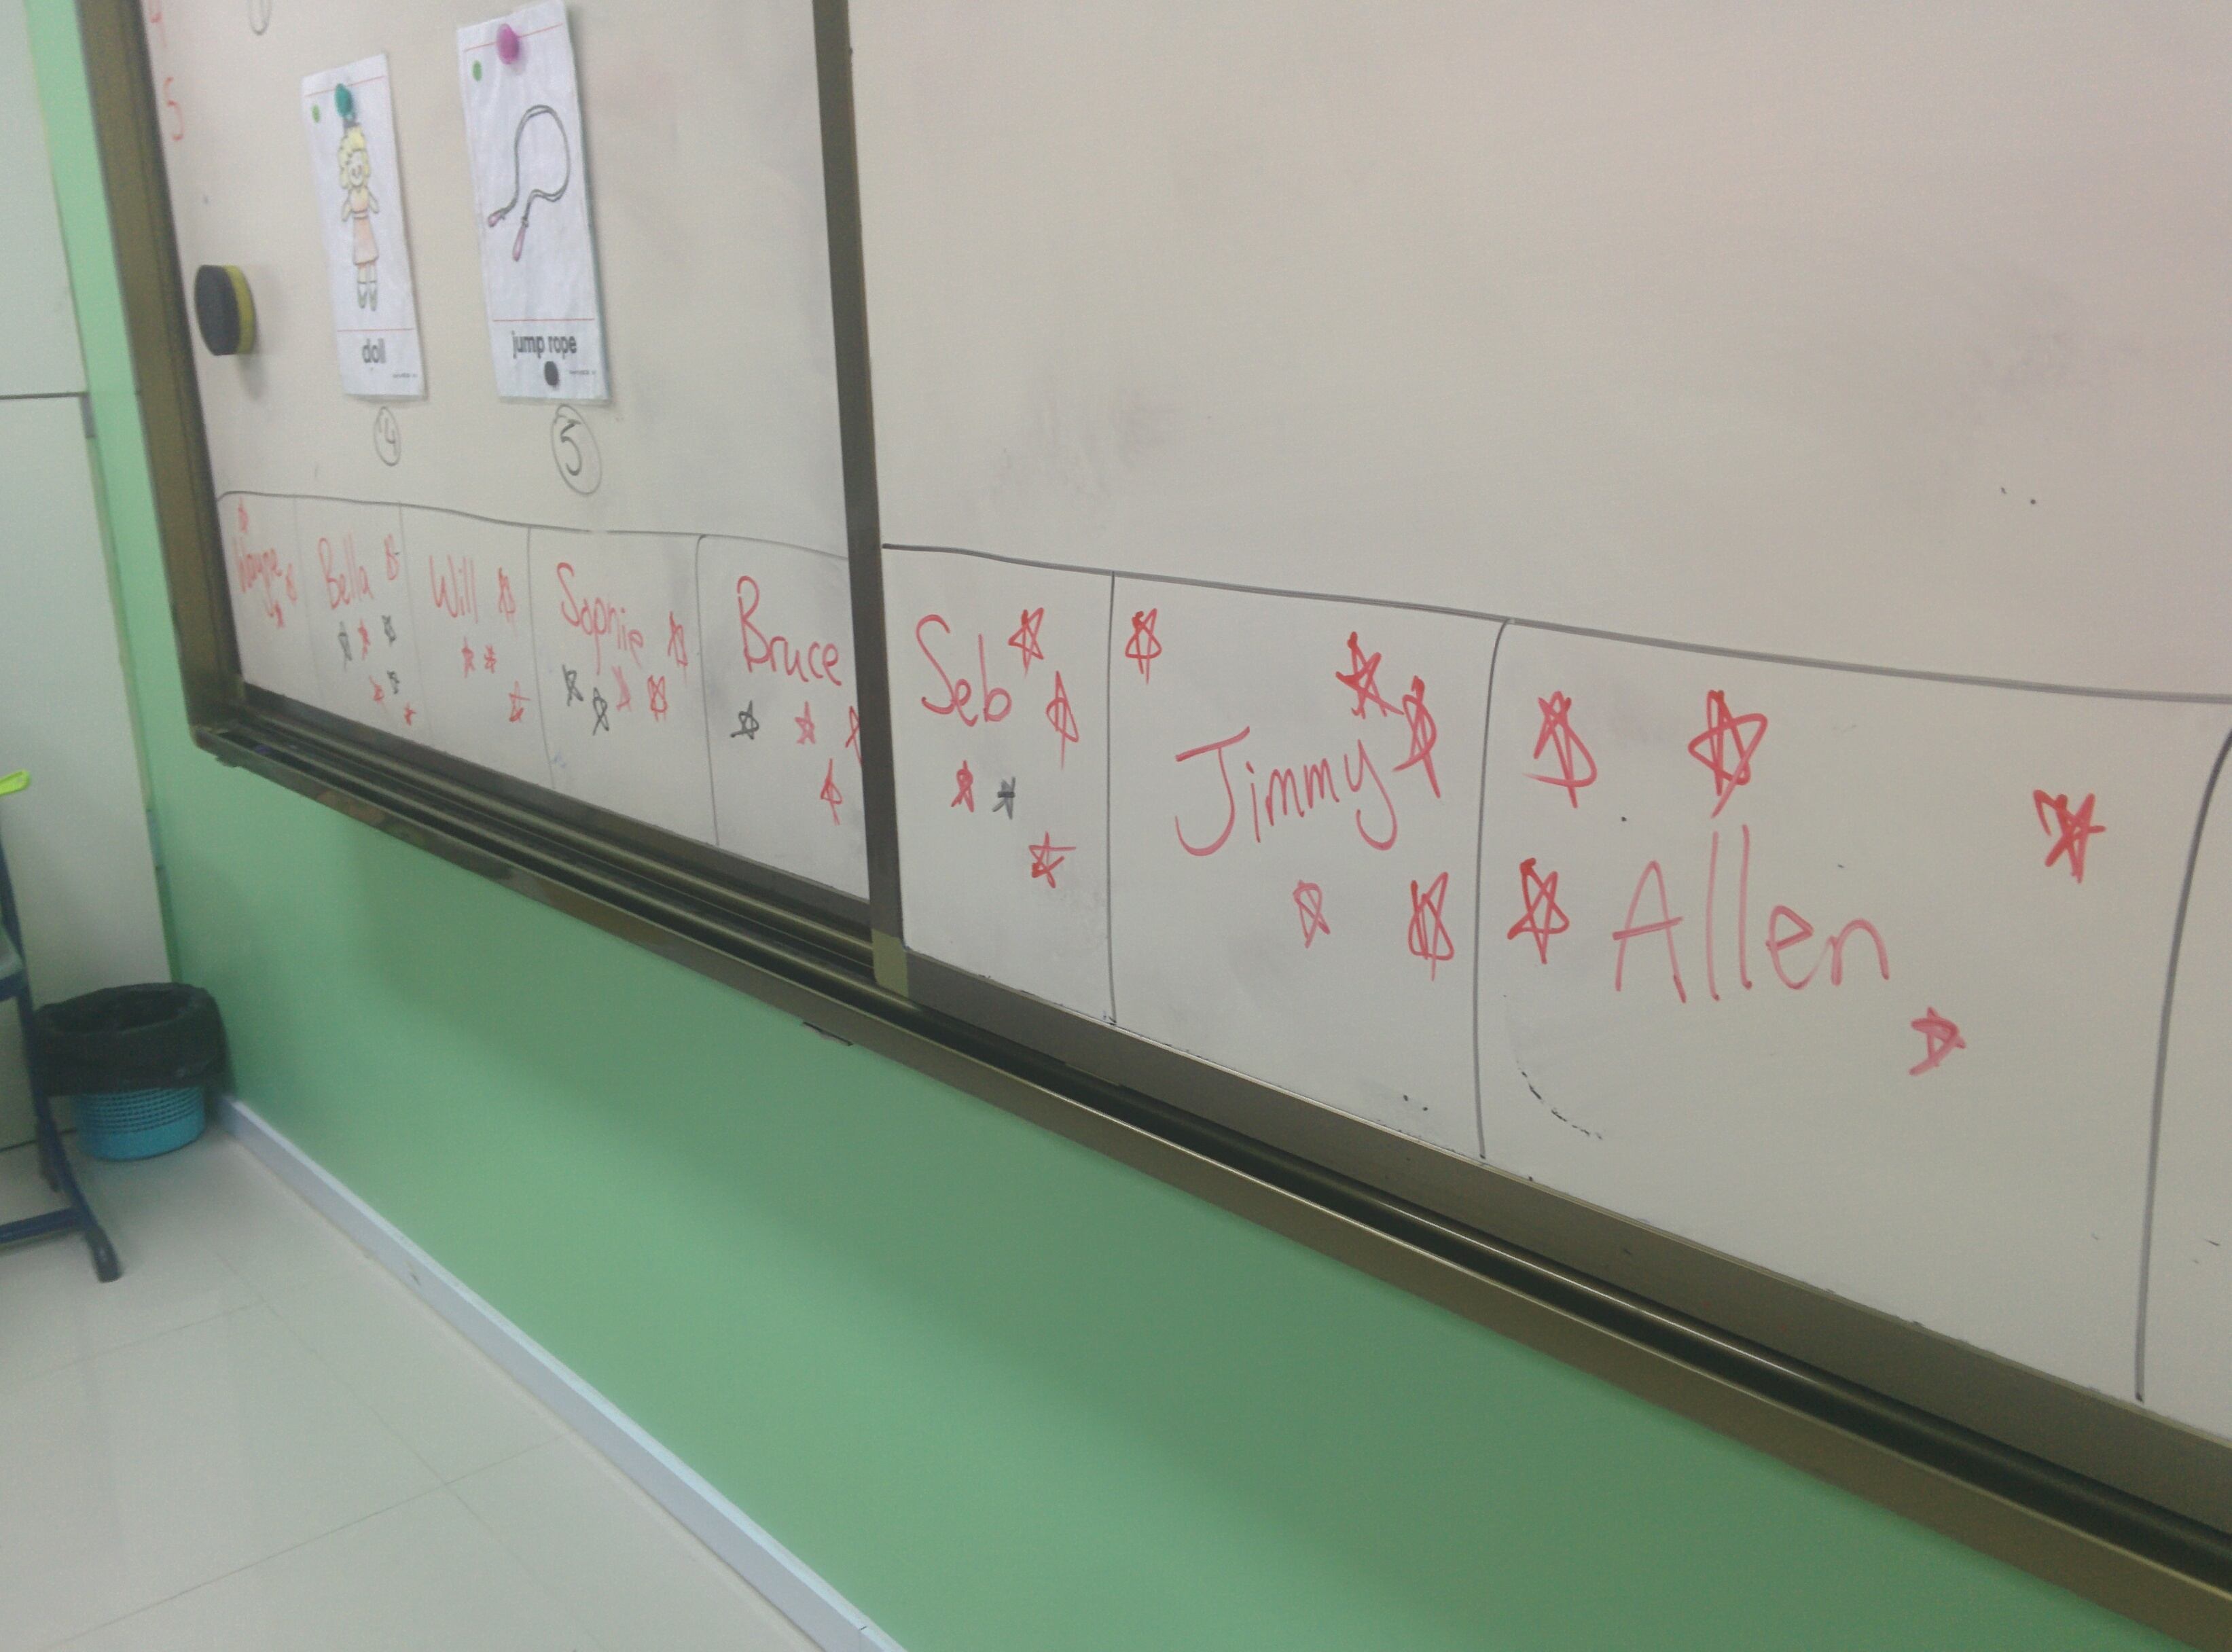 4
5
doll
jump rope
4
5
Wayne
Bella
Will
Sophie
Bruce
Seb
Jimmy
Allen